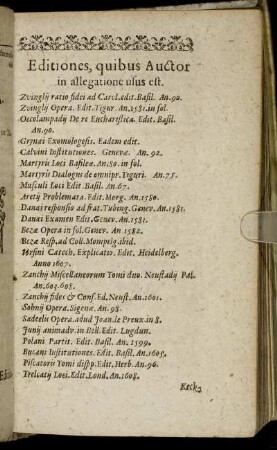 Editiones, quibus Auctor
in allegatione usus est.
Zvinglij ratio fidei ad Carol. edit. Basil. An. 92.
Zvinglij Opera. Edit. Tigur. An. 1581. in fol.
Oecolampadij De re Eucharistica. Edit. Basil.
An. 90.
Grynæi Exomologesis. Eadem edit.
Calvini Institutiones. Genevæ. An. 92.
Martyris Loci Basileæ. An. 80. in fol.
Martyris Dialogus de omnipr. Tiguri. An. 75.
Musculi Loci Edit Basil. An. 67.
Aretij Problemata. Edit. Morg. An. 1580.
Danæi responsio ad frat. Tubing. Genev. An. 1581.
Danæi Examen Edit. Genev. An. 1581.
Bezæ Opera in fol. Genev. An 1582.
Bezæ Resp. ad Coll. Mompelg. ibid.
Vrsini Catech. Explicatio. Edit. Heidelberg.
Anno 1607.
Zanchij Miscellaneorum Tomi duo. Neustadij Pal.
An. 604. 608.
Zanchij fides & Conf. Ed. Neust. An. 1601.
Sohnij Opera. Sigenæ. An. 98.
Sadeelis Opera. apud Joan. le Preux in 8.
Junij animadv. in Bell. Edit. Lugdun.
Polani Partit. Edit. Basil. An. 1599.
Bucani Institutiones. Edit. Basil. An. 1605.
Piscatoris Tomi dispp. Edit. Herb. An. 96.
Trelcatij Loci. Edit. Lond. An. 1608.